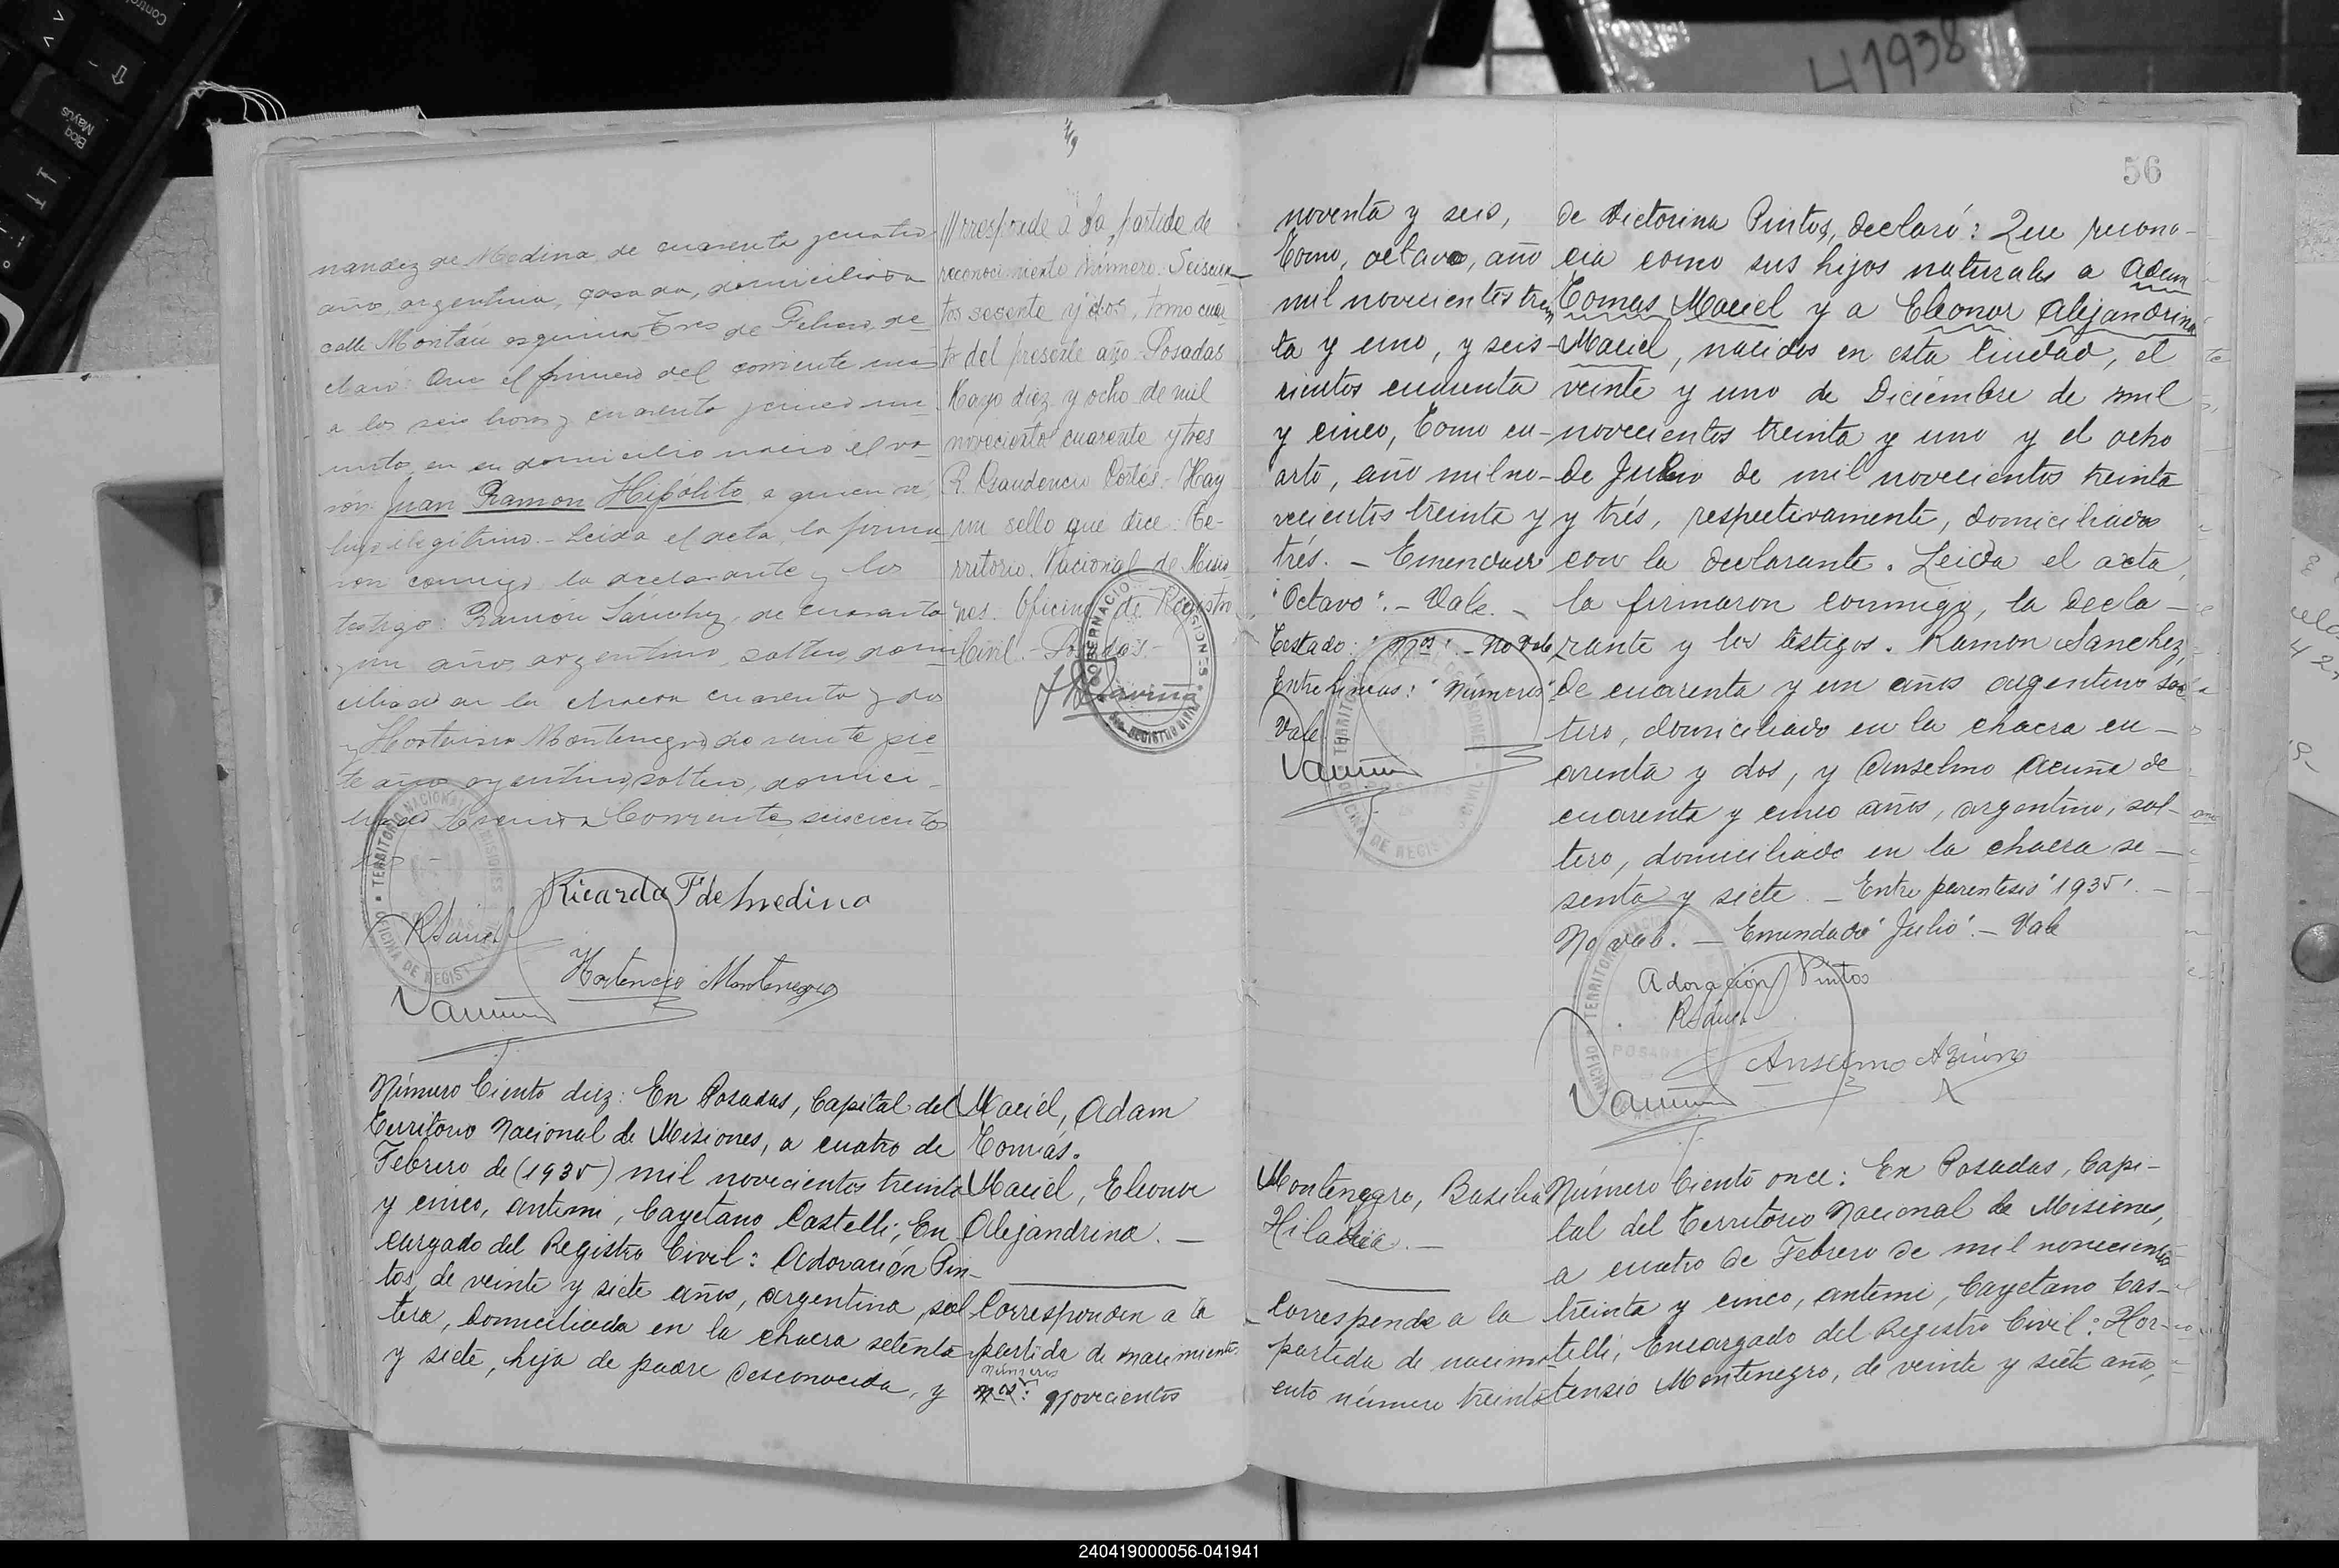 41938
56
nandez de Medina, de cuarenta y cuatro
años, argentina, casada, domiciliada
calle Montau esquina Tres de Febrero, de
claró: Que el primero del corriente mes
a las seis horas y cuarenta y cinco mi
nutos, en su domicilio nació el va
rón Juan Ramon Hipólito, a quien
hijo legítimo.- Leida el acta, la firma
ron conmigo, la declarante y los
testigos: Ramón Sánchez, de cuarenta
y un años, argentino, soltero, domi
ciliado en la chacra cuarenta y dos
y Hortensio Montenegro, de veinte y sie
te años, argentino, soltero, domici-
liado Avenida Corrientes seiscientos
Ricarda F de Medina
RSanch
Hortencio Montenegro
//rresponde a la partida de
reconocimiento número Seiscien-
tos sesenta y dos, tomo cuar
to del presente año. Posadas
Mayo diez y ocho de mil
novecientos cuarenta y tres
R. Gaudencio Cortés - Hay
un sello que dice: Te-
rritorio Nacional de Misio
nes. Oficina de Registro
Civil.- Posadas -
GOBERNACIO
MISIONES
REGISTRO CIVIL
TERRITORIO NACIONAL
MISIONES
OFICINA DE REGIST
Número Ciento diez: En Posadas, Capital del
Territorio Nacional de Misiones, a cuatro de
Febrero de (1935) mil novecientos treinta
y cinco, antemi, Cayetano Castelli, En
cargado del Registro Civil: Adoración Pin-
tos, de veinte y siete años, argentina, sol
tera, domiciliada en la chacra setenta
y siete, hija de padre desconocido, y
Maciel, Adam
Tomás.
Maciel, Eleonor
Alejandrina. -
Corresponden a la
partida de nacimiento
números
nos: novecientos
noventa y seis,
Tomo, octavo, año
mil novecientos trein
ta y uno, y seis-
cientos cuarenta
y cinco, Tomo cu-
arto, año mil no-
vecientos treinta y
trés. - Emendado
"Octavo". - Vale. -
Testado: "nos". - No vale
Entre lineas: "números"
Vale.
de Victorina Pintos, declaró: Que recono-
cia como sus hijos naturales a Adam
Tomas Maciel y a Eleonor Alejandrina
Maciel, nacidos en esta Ciudad, el
veinte y uno de Diciembre de mil
novecientos treinta y uno y el ocho
de Julio de mil novecientos treinta
y trés, respectivamente, domiciliados
con la declarante. Leida el acta,
la firmaron conmigo, la decla-
rante y los testigos. Ramon Sanchez,
de cuarenta y un años argentino sol
tero, domiciliado en la chacra cu-
arenta y dos, y Anselmo Acuña de
cuarenta y cinco años, argentino, sol-
tero, domiciliado en la chacra se-
senta y siete. - Entre parentesis "1935". -
No vale. - Emendado "Julio". - Vale
Adoración Pintos
RSanch
POSADAS
Montenegro, Basilia
Hilaria. -
Corresponde a la
partida de nacimi
ento número treinta
Número Ciento once: En Posadas, Capi-
tal del Territorio Nacional de Misiones,
a cuatro de Febrero de mil novecientos
treinta y cinco, antemi, Cayetano Cas-
telli, Encargado del Registro Civil: Hor-
tensio Montenegro, de veinte y siete años,
240419000056-041941